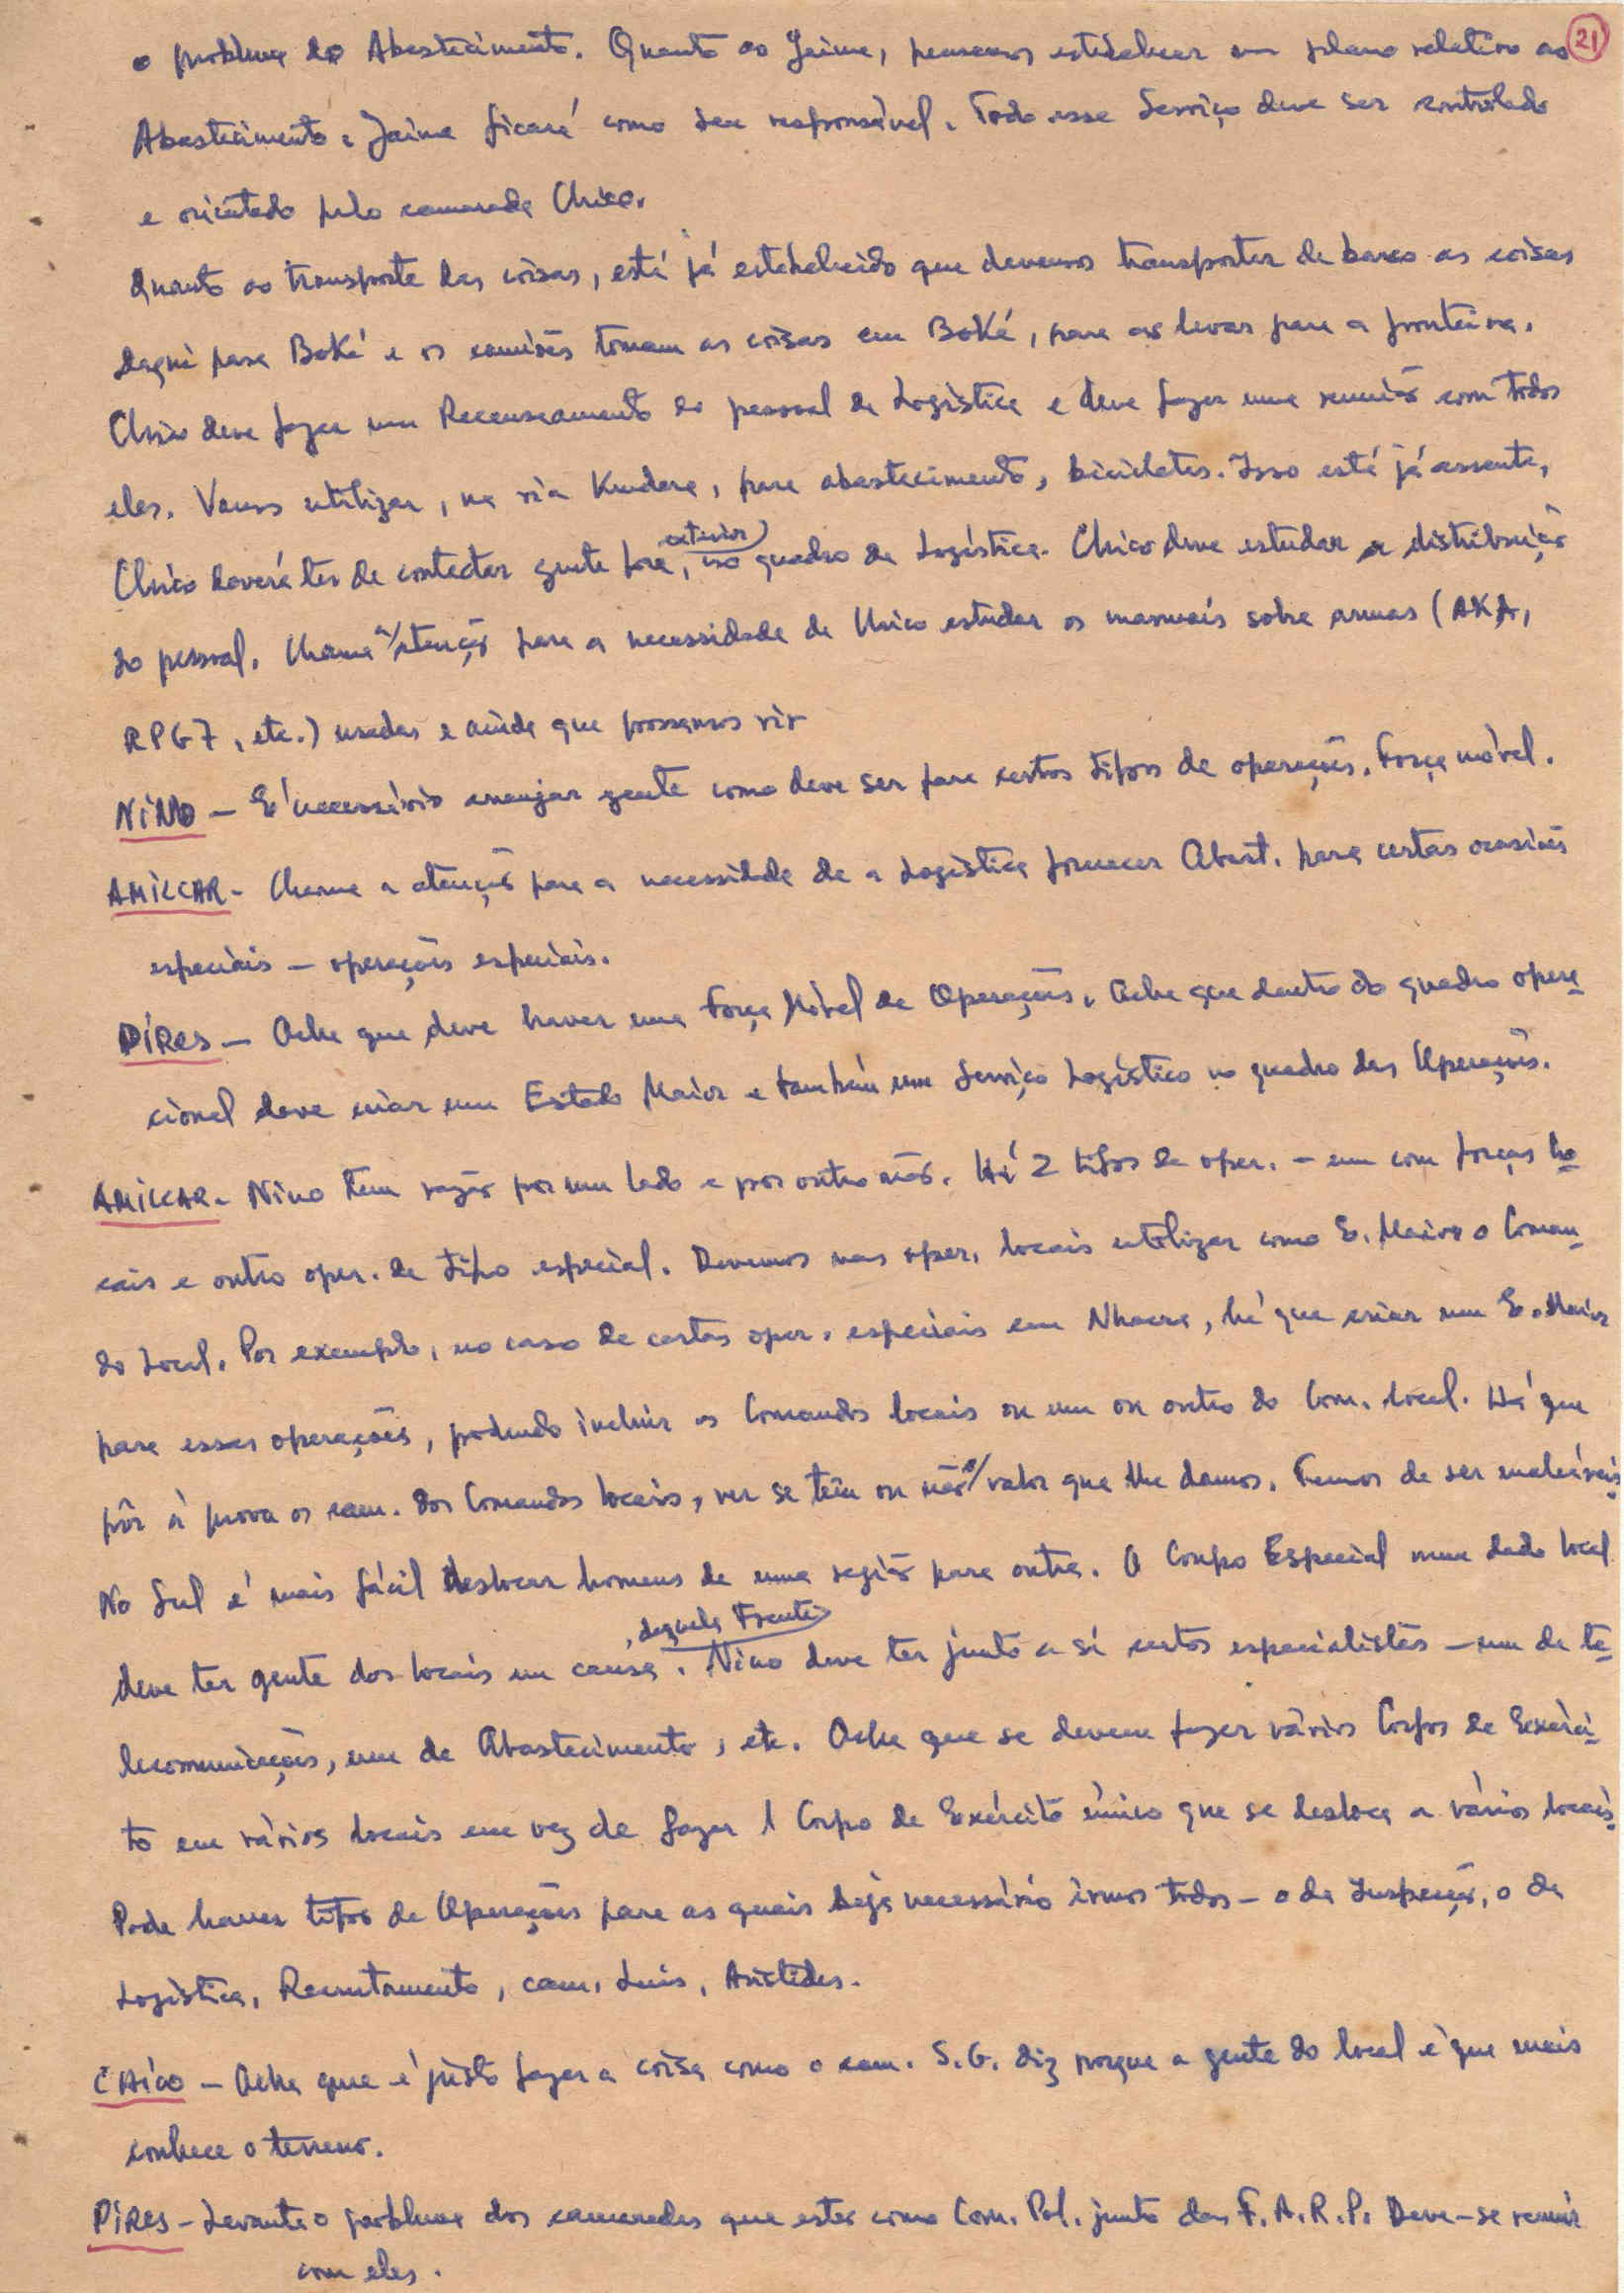 o problema do Abastecimento. Quanto ao Jaime, pensamos estabelecer um plano relativo ao 21
Abastecimento e Jaime ficará como seu responsável. Todo esse Serviço deve ser controlado
e orientado pelo camarada Chico.
Quanto ao transporte das coisas, está já estabelecido que devemos transportar de barco as coisas
daqui para Boké e os camiões tomam as coisas em Boké, para as levar para a fronteira.
Chico deve fazer um Recenseamento do pessoal da Logística e deve fazer uma reunião com todos
eles. Vamos utilizar, na via Kandara, para abastecimento, bicicletas. Isso está já assente,
Chico deverá ter de contactar gente fora, no quadro da Logística. Chico deve estudar a distribuição
exterior
do pessoal. Chama a/atenção para a necessidade de Chico estudar os manuais sobre armas (AKA,
RPG7, etc.) usadas e ainda que possamos vir
NINO - É necessário arranjar gente como deve ser para certos tipos de operações. Força móvel.
AMILCAR - Chama a atenção para a necessidade de a Logística fornecer Abast. para certas ocasiões
especiais - operações especiais.
PIRES - Acha que deve haver uma Força Móvel de Operações. Acha que dentro do quadro opera-
cional deve criar um Estado Maior e também um Serviço Logístico no quadro das Operações.
AMILCAR - Nino tem razão por um lado e por outro não. Há 2 tipos de oper. - um com forças lo-
cais e outro oper. de tipo especial. Devemos nas oper. locais utilizar como E. Maior o Coman-
do Local. Por exemplo, no caso de certas oper. especiais em Nhacra, há que criar um E. Maior
para essas operações, podendo incluir os Comandos locais ou um ou outro do Com. local. Há que
pôr à prova os cam. dos Comandos locais, ver se têm ou não o/valor que lhe damos. Temos de ser maleáveis.
No Sul é mais fácil deslocar homens de uma região para outra. O Corpo Especial num dado local
deve ter gente dos locais em causa. Nino deve ter junto a si certos especialistas - um de te-
, daquela Frente
lecomunicações, um de Abastecimento, etc. Acha que se devem fazer vários Corpos de Exérci-
to em vários locais em vez de fazer 1 Corpo de Exército único que se desloca a vários locais.
Pode haver tipos de Operações para as quais seja necessário irmos todos - o da Inspecção, o da
Logística, Recrutamento, cam. Luís, Aristides.
CHICO - Acha que é justo fazer a coisa como o cam. S.G. diz porque a gente do local é que mais
conhece o terreno.
PIRES - Levanta o problema dos camaradas que estão como Com. Pol. junto das F.A.R.P. Deve-se reunir
com eles.